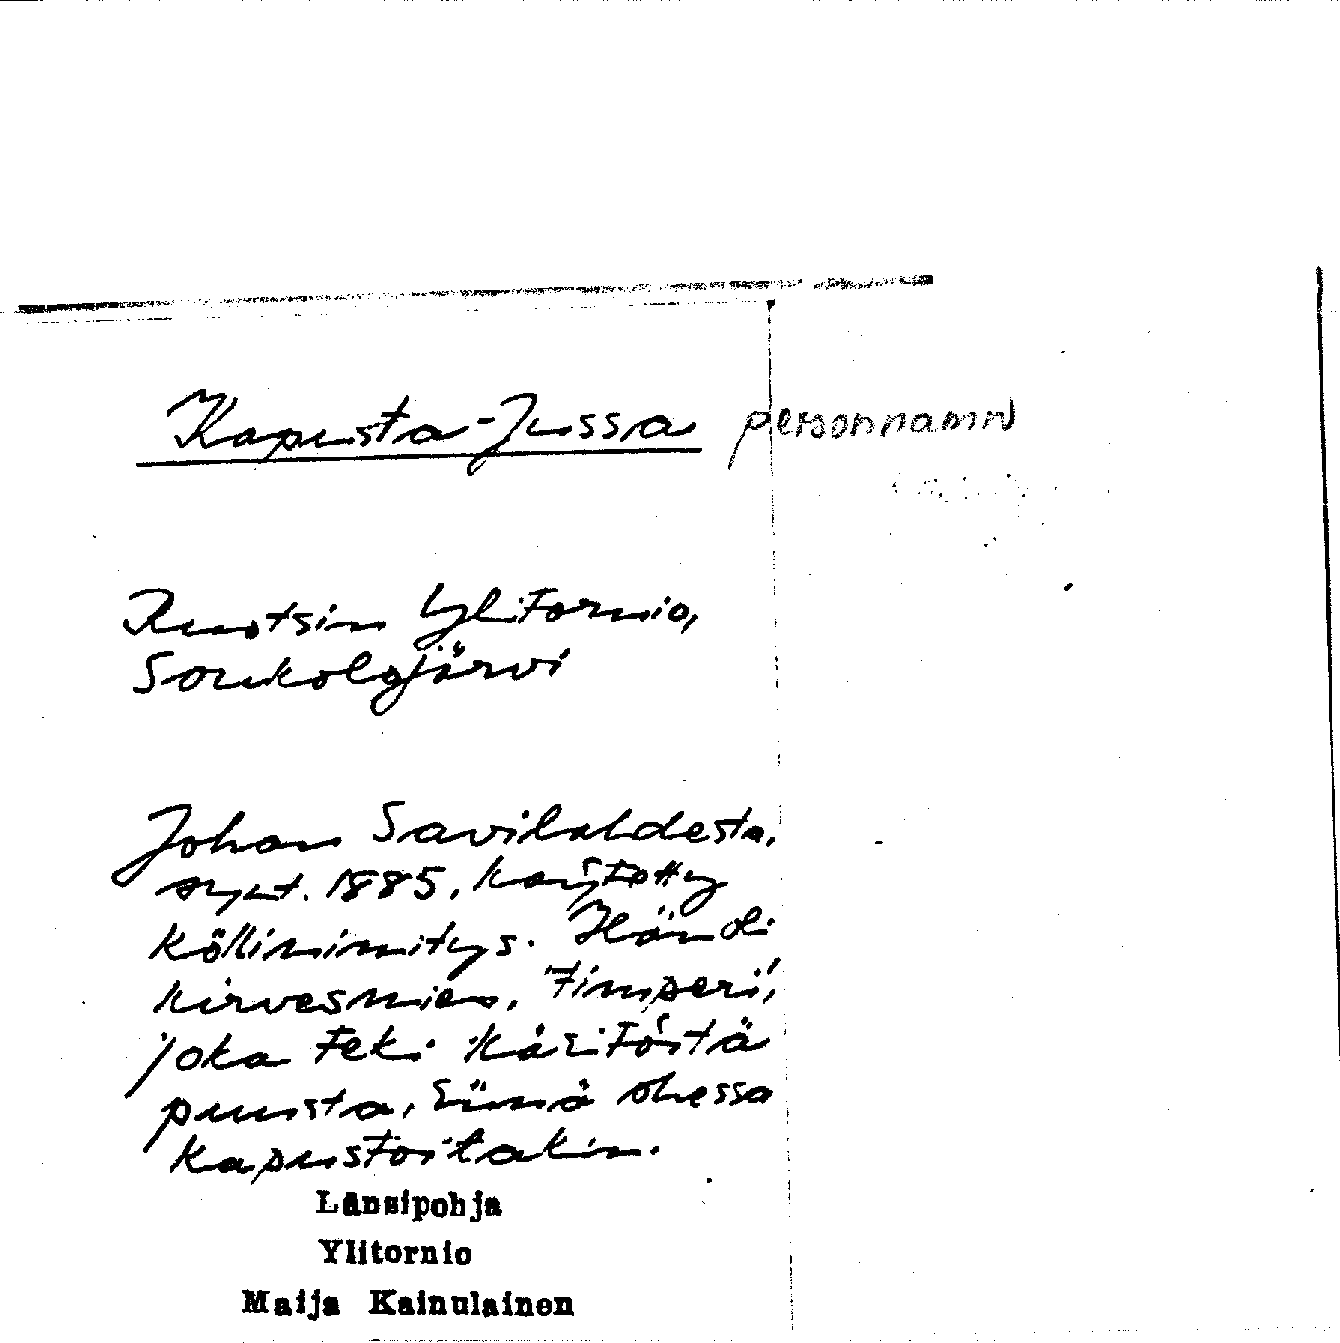 Kapusta-Jussa personnamn
Ruotsin Ylitornio,
Soukolojärvi
Johan Savilahdesta,
synt. 1885, käytetty
köllinimitys. Hän oli
kirvesmies, "timperi",
joka teki käsitöitä
puusta, siinä ohessa
kapustoitakin.
Länsipohja
Ylitornio
Maija Kainulainen